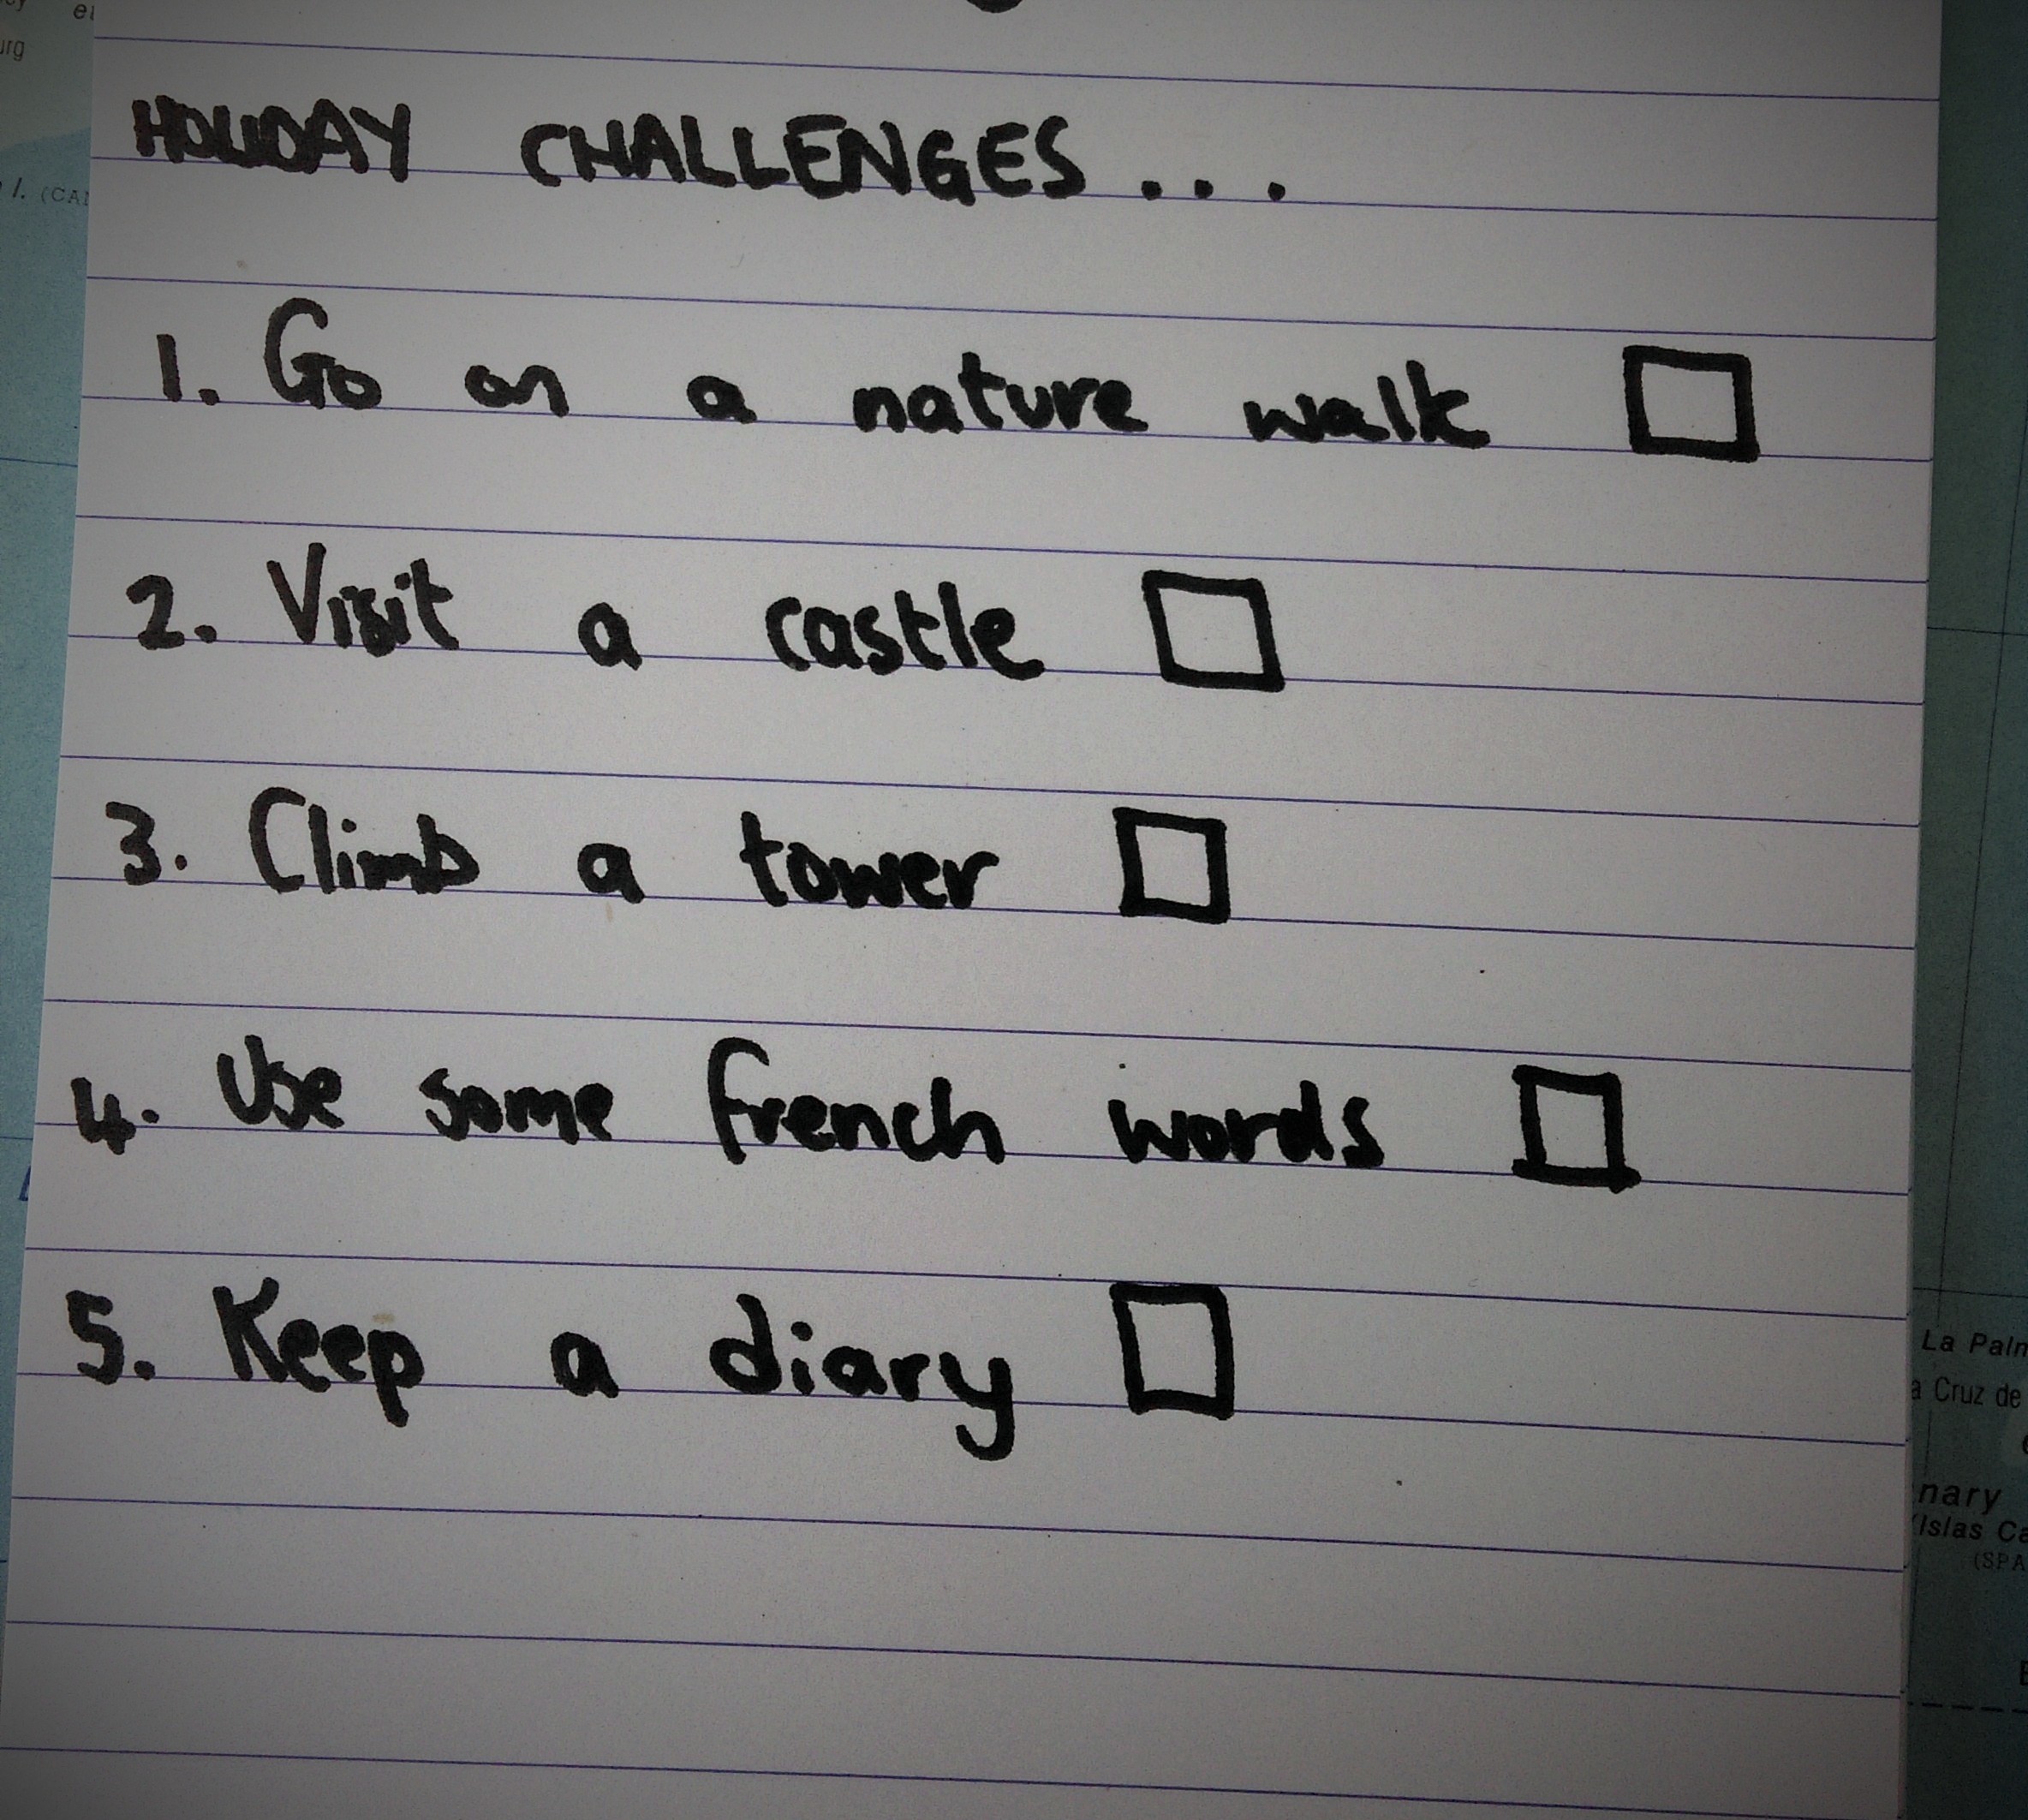 HOLIDAY CHALLENGES...
1. Go on a nature walk
2. Visit a castle
3. Climb a tower
4. Use some french words
5. Keep a diary
La Palm
a Cruz de
nary
(Islas Ca
(SPA
urg
I. (CAN